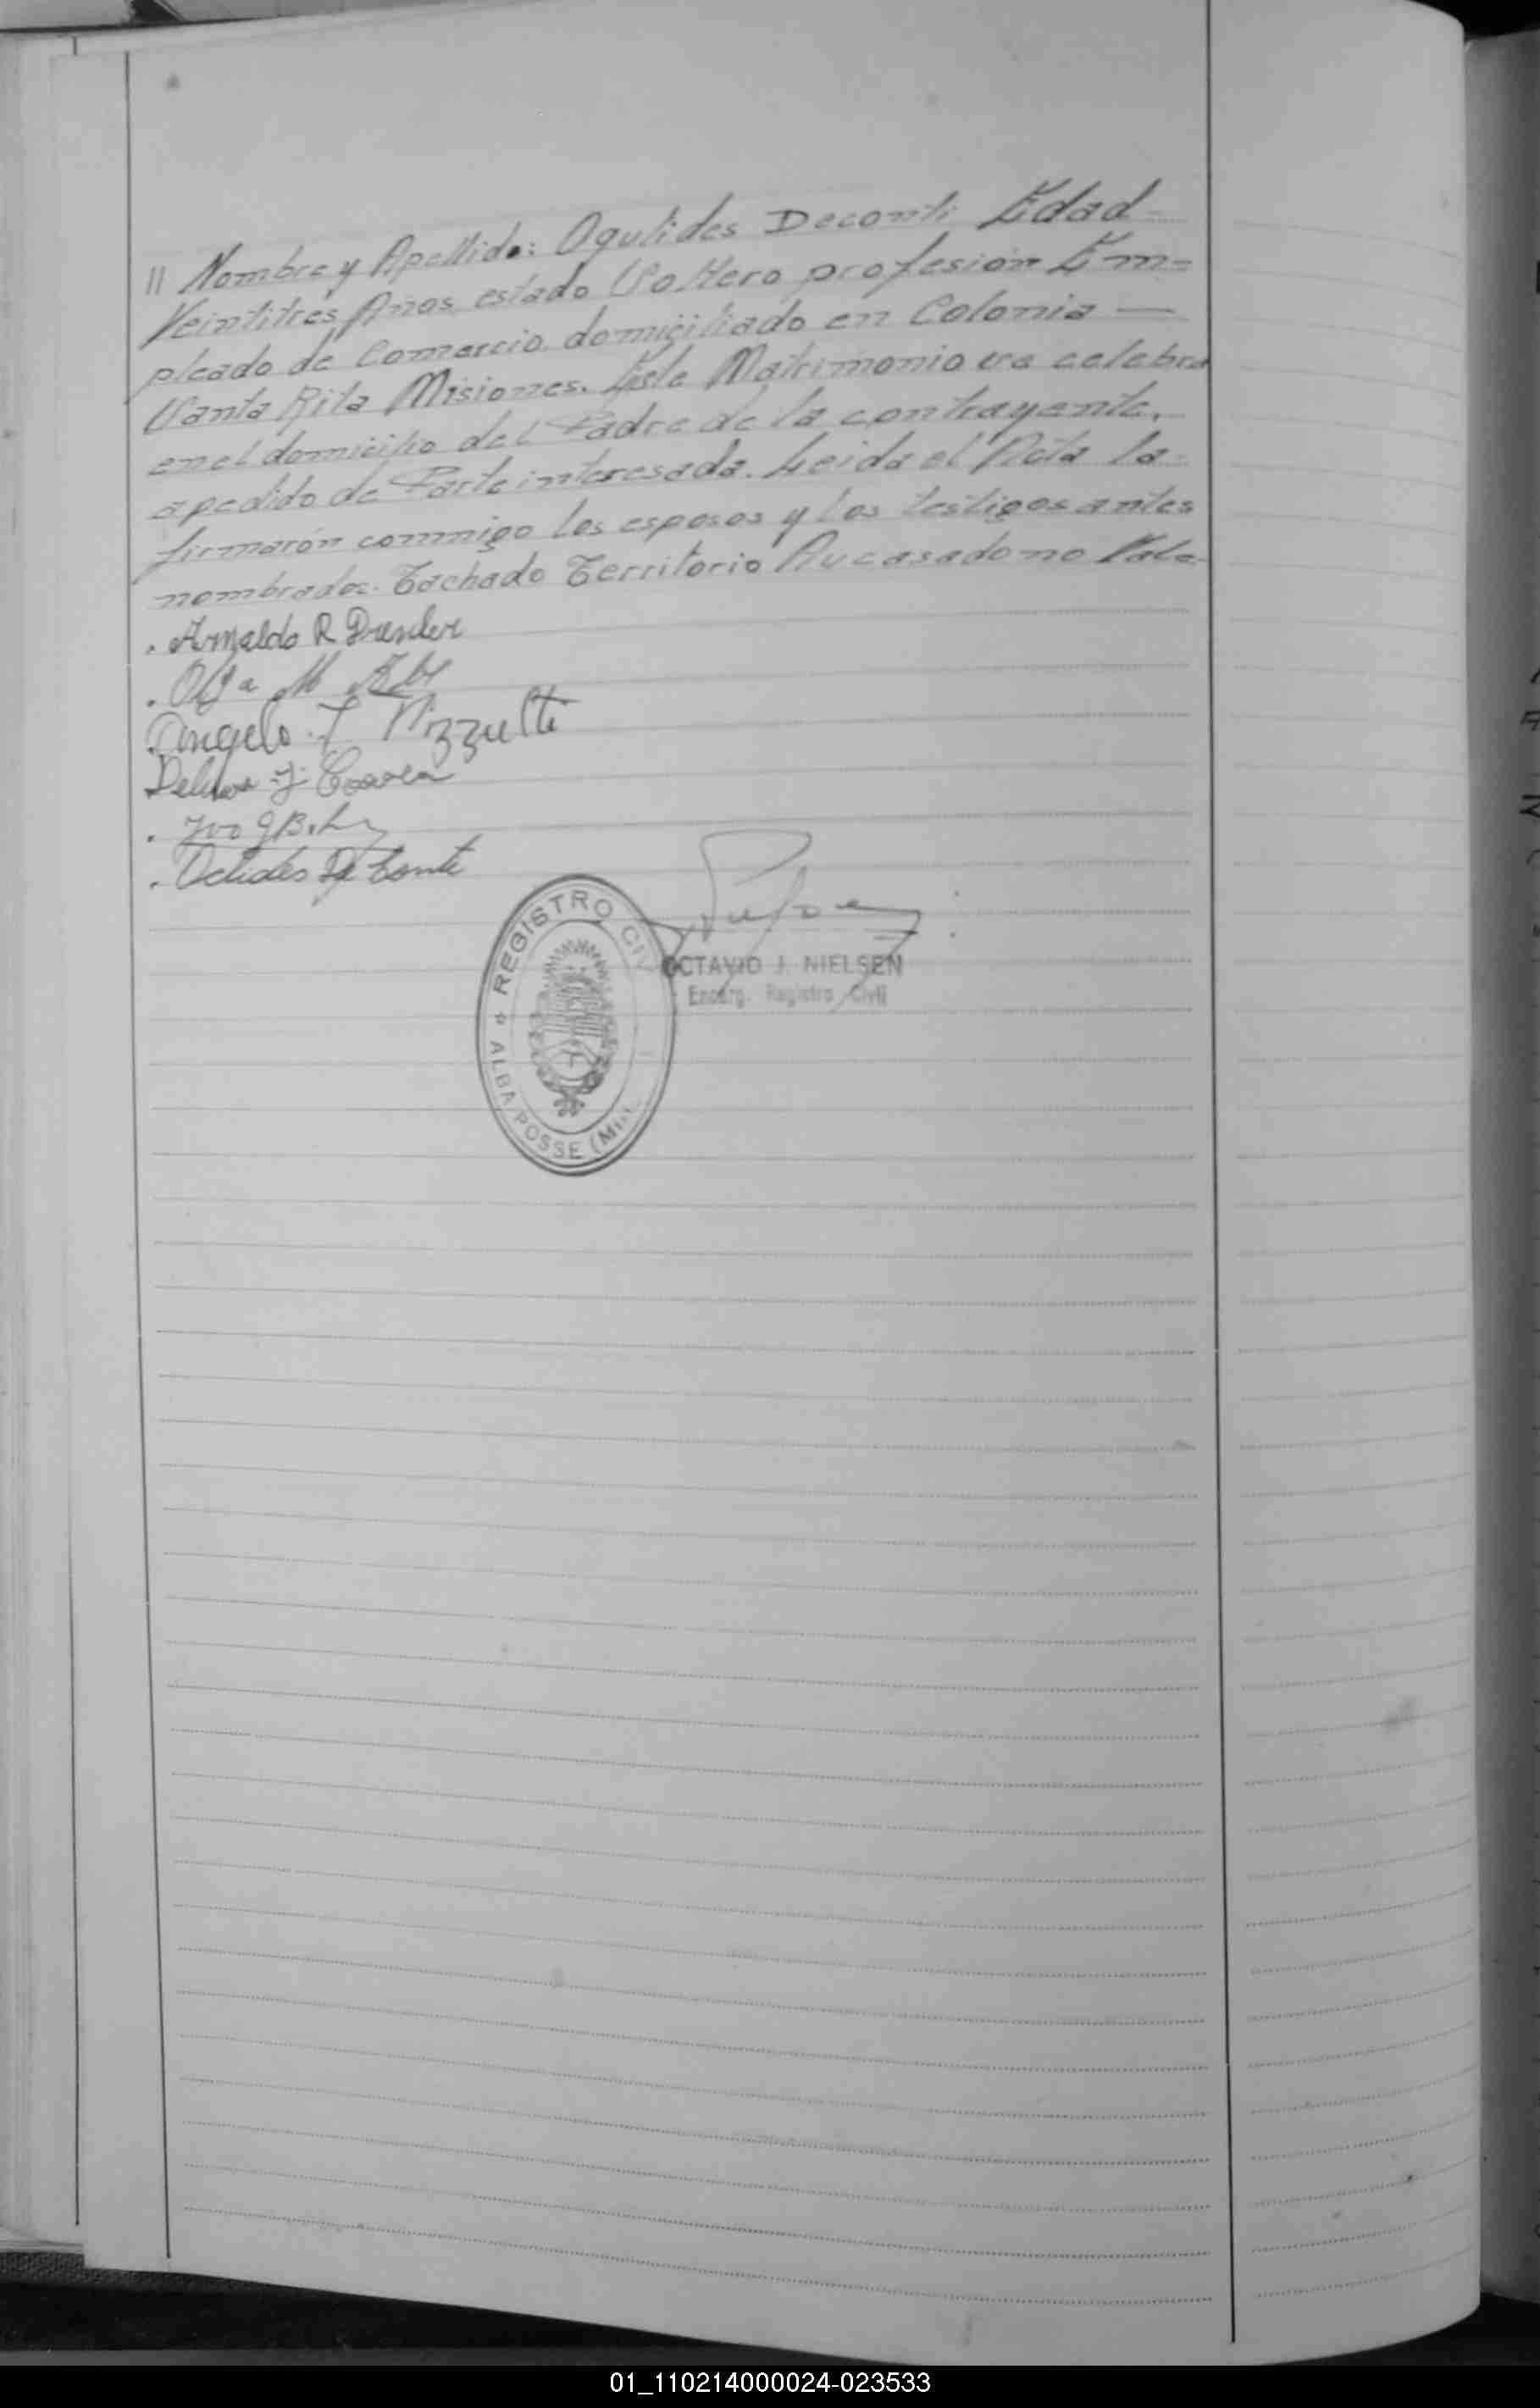 11 Nombre y Apellido: Oqulides Deconti Edad
Veintitres Años estado Soltero profesion Em=
pleado de Comercio domiciliado en Colonia —
Santa Rita Misiones. Este Matrimonio es celebra
en el domicilio del Padre de la contrayente,
a pedido de Parte interesada. Leida el Acta la
firmarón commigo los esposos y los testigos antes
nombrados. Tachado Territorio Au casado no Vale
. Arnaldo R
. Olga M
Angelo
Delmar J.
. Ivo
. Oclides De Conte
REGISTRO CIVIL
ALBA POSSE (Mis.
OCTAVIO J. NIELSEN
Encarg. Registro Civil
01_110214000024-023533